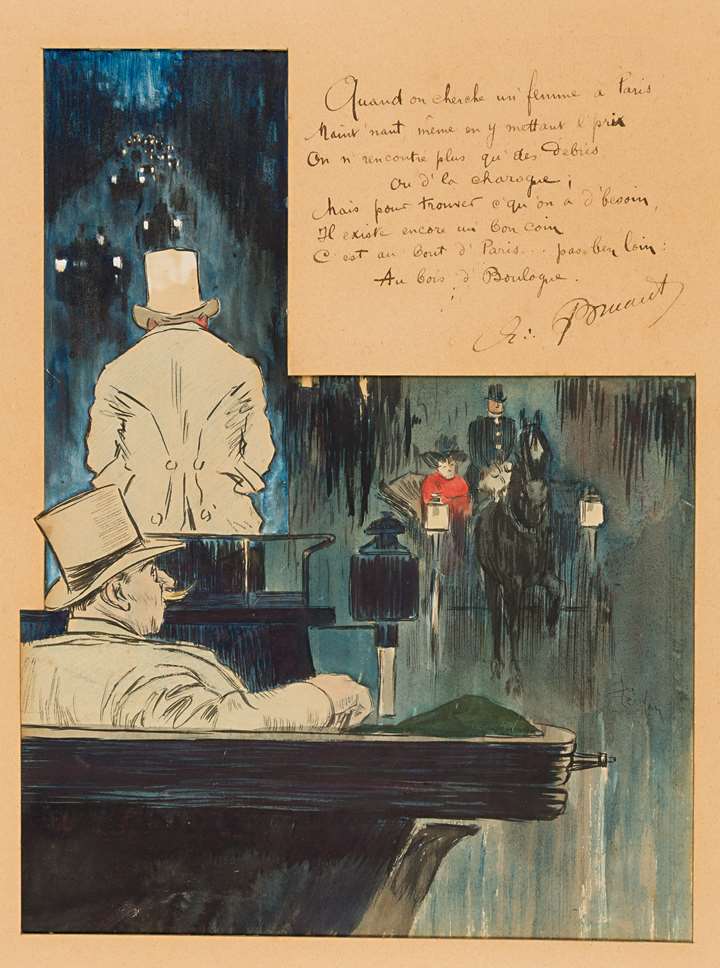 Quand on cherche un' femme à Paris
Maint'nant même en y mettant l'prix
On n'rencontre plus qu'des débris
Ou d'la charogne ;
Mais pour trouver c'qu'on a d'besoin,
Il existe encore un bon coin
C'est au bout d'Paris... pas ben loin :
Au bois d'Boulogne.
Bruant